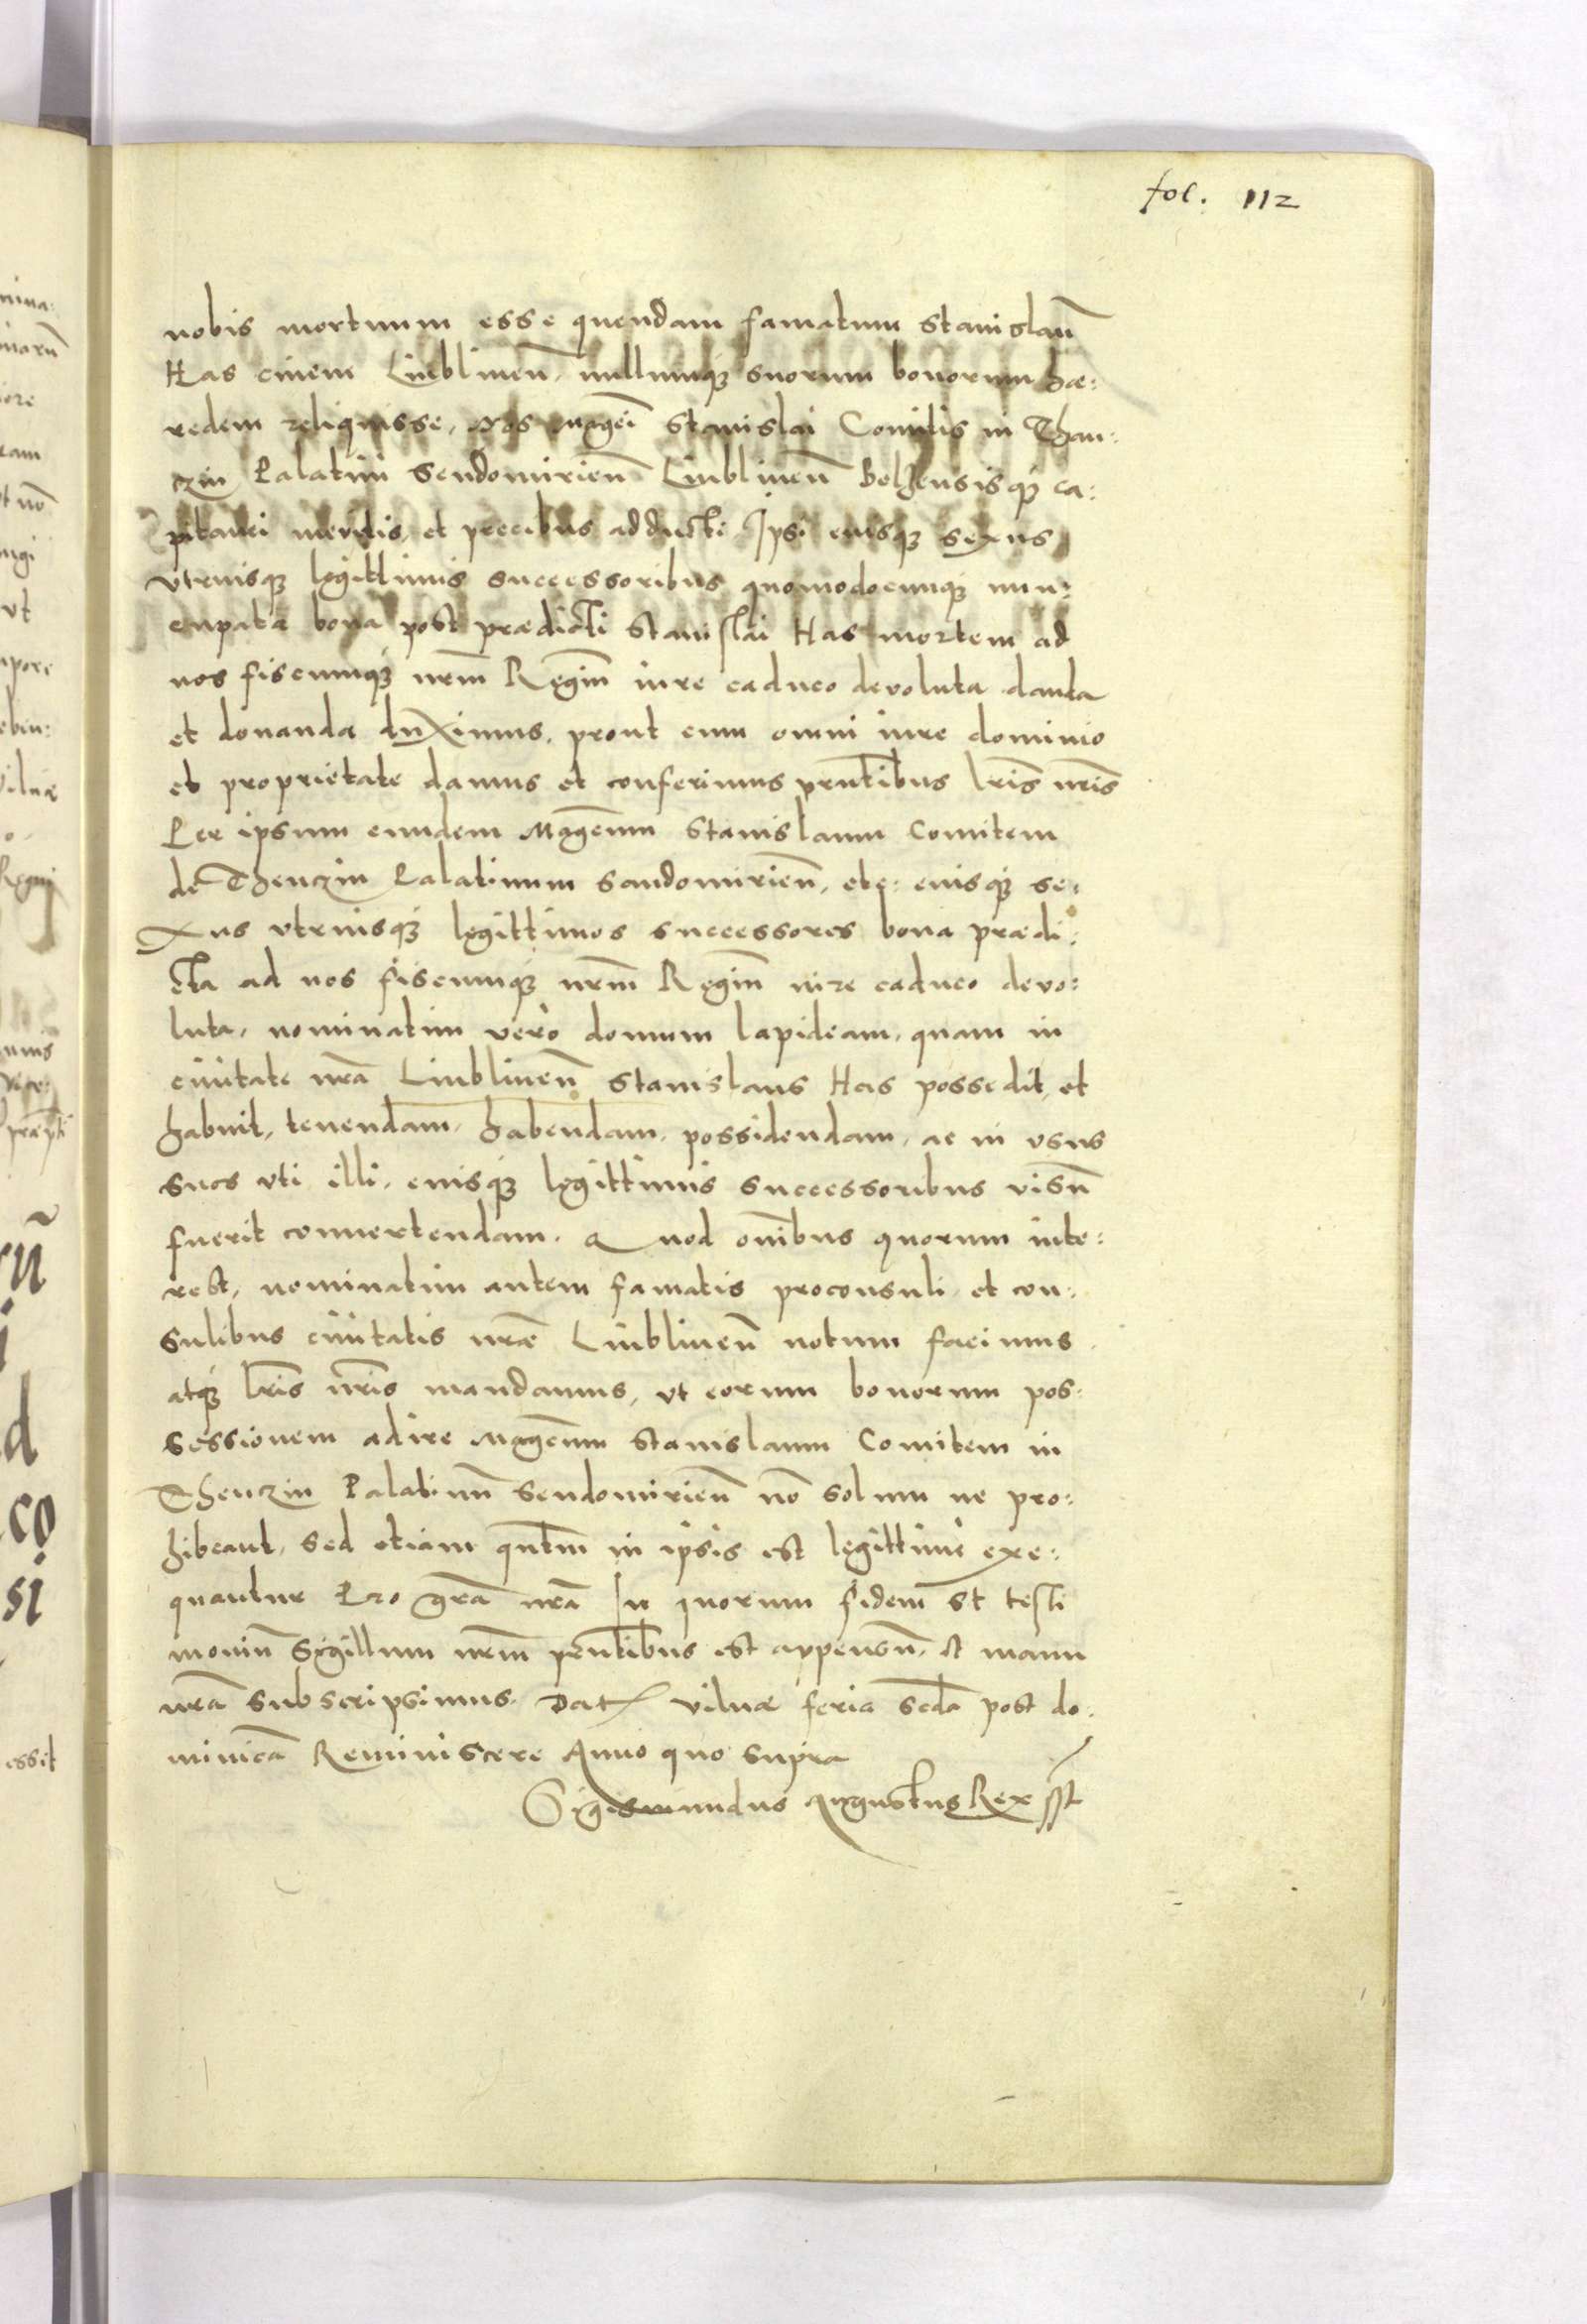 fol. 112
nobis mortuum esse quendam famatum Stanislaũ
Has civem Liublineñ, nullumq₃ suorum bonorum hæ:
redem reliquisse, Nos Magci Stanislai Comitis in Than:
czin Palatini Sendomirieñ Liublineñ Belzensisq₃ ca:
pitanei meritis, et precibus adducti Ipsi eiusq₃ sexus
vtriusq₃ legittimis successoribus quomodocunq₃ nun:
cupata bona post prædicti Stanislai Has mortem ad
nos fiscumq₃ nrm̃ Regiũ iure caduco devoluta danda
et donanda duximus, prout cum omni iure dominio
et proprietate damus et conferimus prñtibus lris nris
Per ipsum eundem Magcum Stanislaum Comitem
de Thenczin Palatinum Sandomirieñ, etc: eiusq₃ se:
xus vtriusq₃ legittimos successores bona prædi:
cta ad nos fiscumq₃ nrm̃ Regiũ iure caduco devo:
luta, nominatim verò domum lapideam, quam in
ciuitate nrã Liublineñ Stanislaus Has possedit, et
habuit, tenendam, habendam, possidendam, ac in vsus
suos vti illi, eiusq₃ legittimis successoribus visũ
fuerit conuertendam. Quod oñibus quorum inte:
rest, nominatim autem famatis proconsuli, et con:
sulibus ciuitatis nræ Liublineñ notum facimus
atq₃ lris nris mandamus, vt eorum bonorum pos:
sessionem adire Magcum Stanislaum Comitem in
Thenczin Palatinũ Sendomirieñ nõ solum ne pro:
hibeant, sed etiam qntm̃ in ipsis est legittimè exe:
quantur Pro gra nrã In quorum fidem et testi
moniũ Sigillum nrm̃ prñtibus est appensũ, et manu
nrã subscripsimus. Dat Vilnæ feria scda post do:
minicã Reminiscere Anno quo supra
Sigismundus Augustus Rex sst